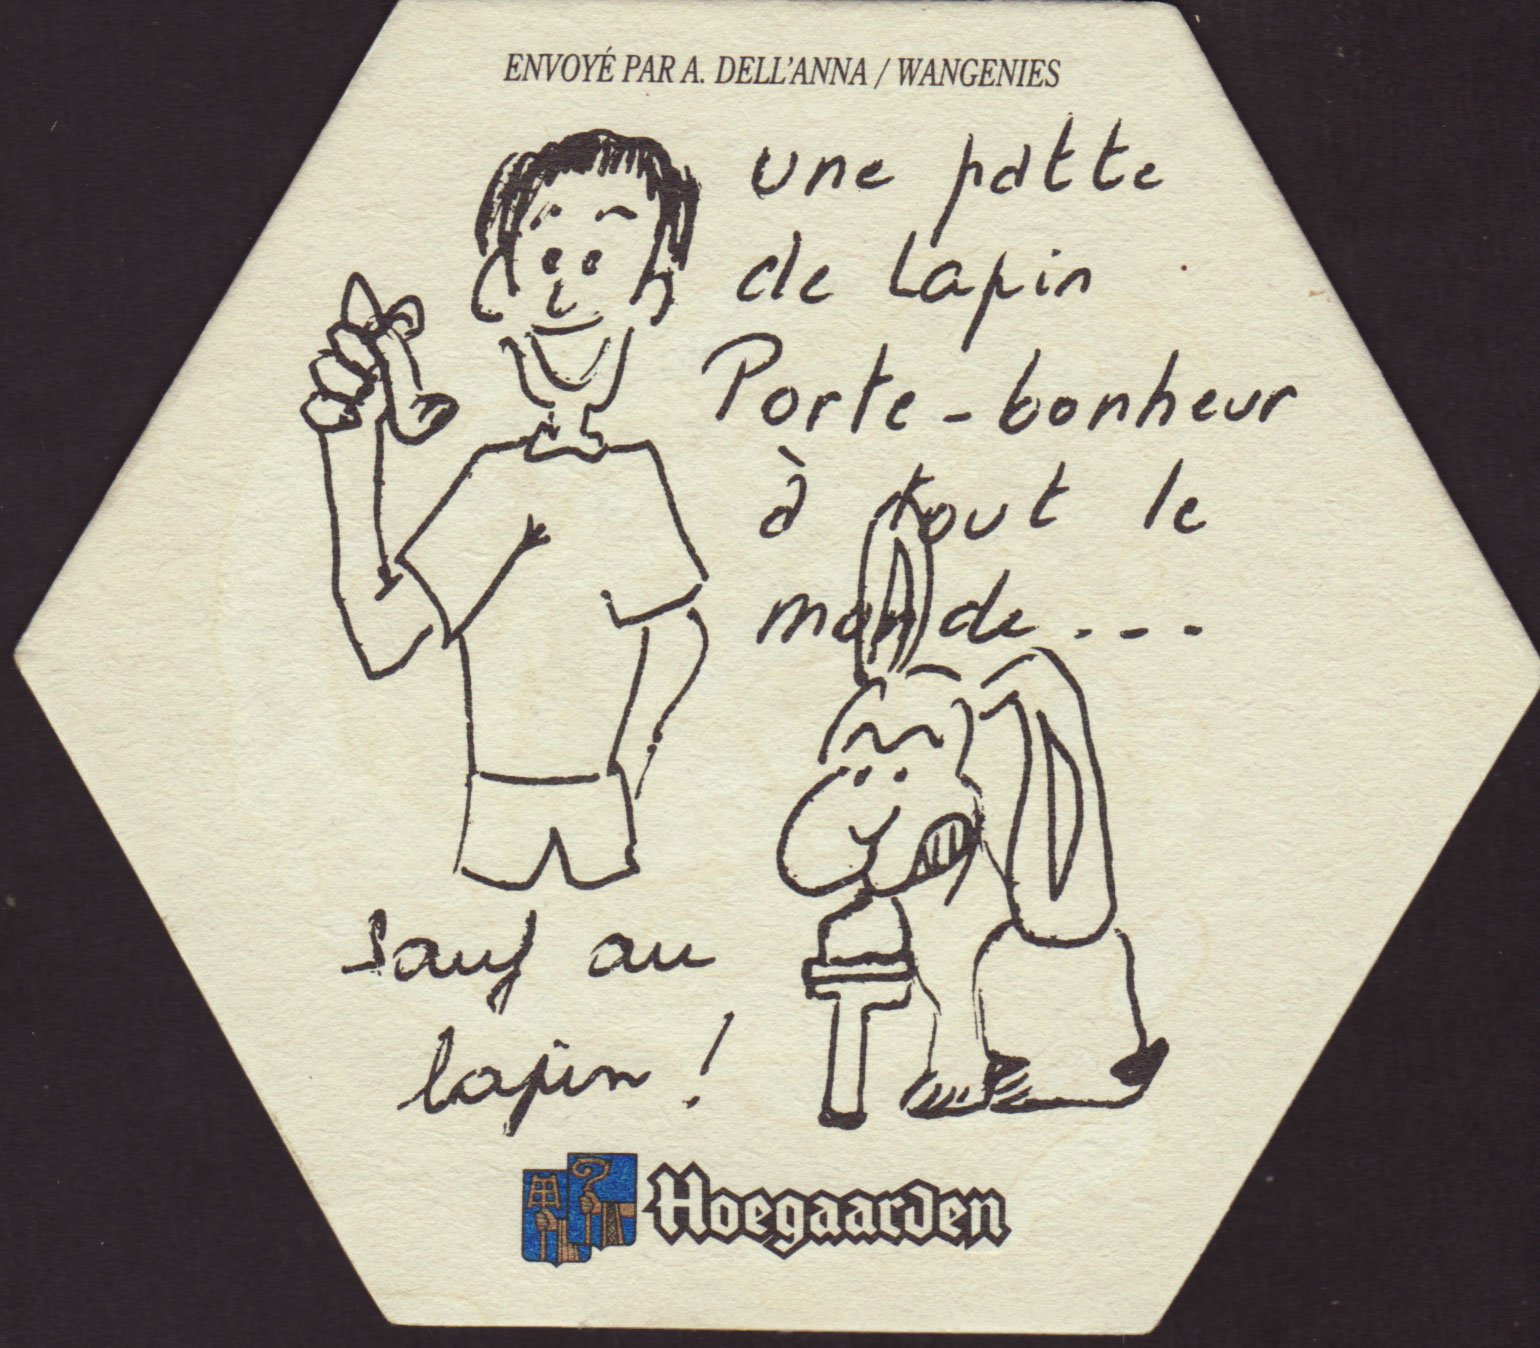 ENVOYÉ PAR A. DELL'ANNA / WANGENIES
une patte
de lapin
Porte-bonheur
à tout le
monde...
sauf au
lapin !
Hoegaarden